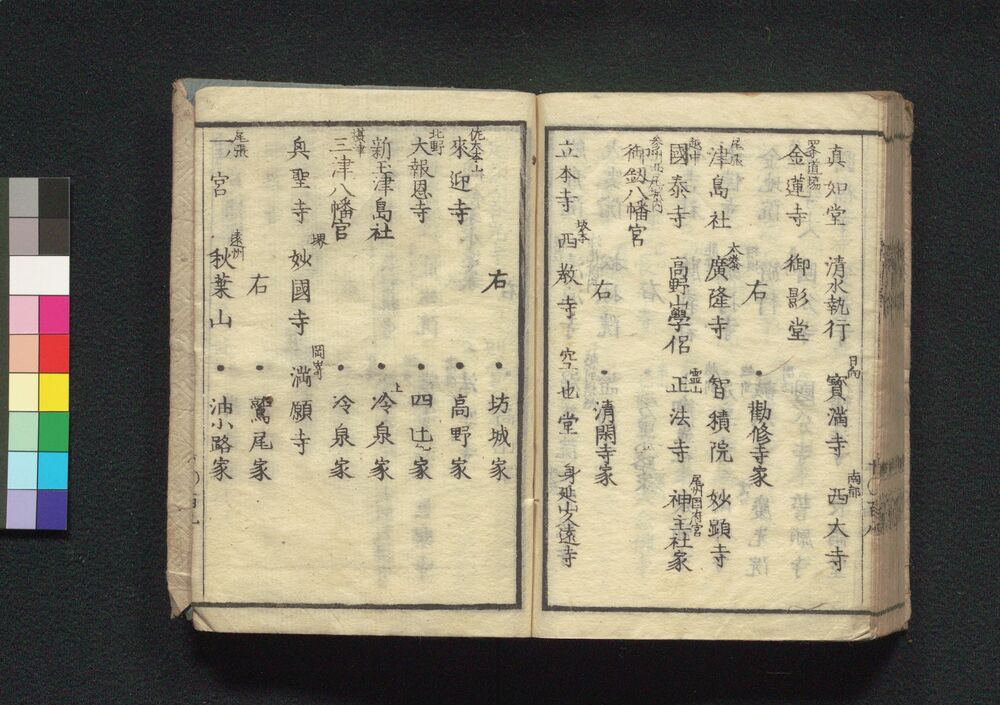 真如堂 清水執行 日向 寳満寺 南都 西大寺
四条道場 金蓮寺 御影堂
右 • 勸修寺家
尾張 津島社 太秦 廣隆寺 智積院 妙顕寺
越中 國泰寺 高野山學侶 霊山 正法寺 尾州国府宮 神主社家
御劔八幡宮
右 • 清閑寺家
立本寺 坂本 西教寺 空也堂 身延山久遠寺
右 • 坊城家
佐々木山 來迎寺 • 高野家
北野 大報恩寺 • 四辻家
新玉津島社 • 上冷泉家
摂津 三津八幡宮 • 冷泉家
興聖寺 堺 妙國寺 岡崎 満願寺
右 • 鷲尾家
尾張 一ノ宮 遠州 秋葉山 • 油小路家